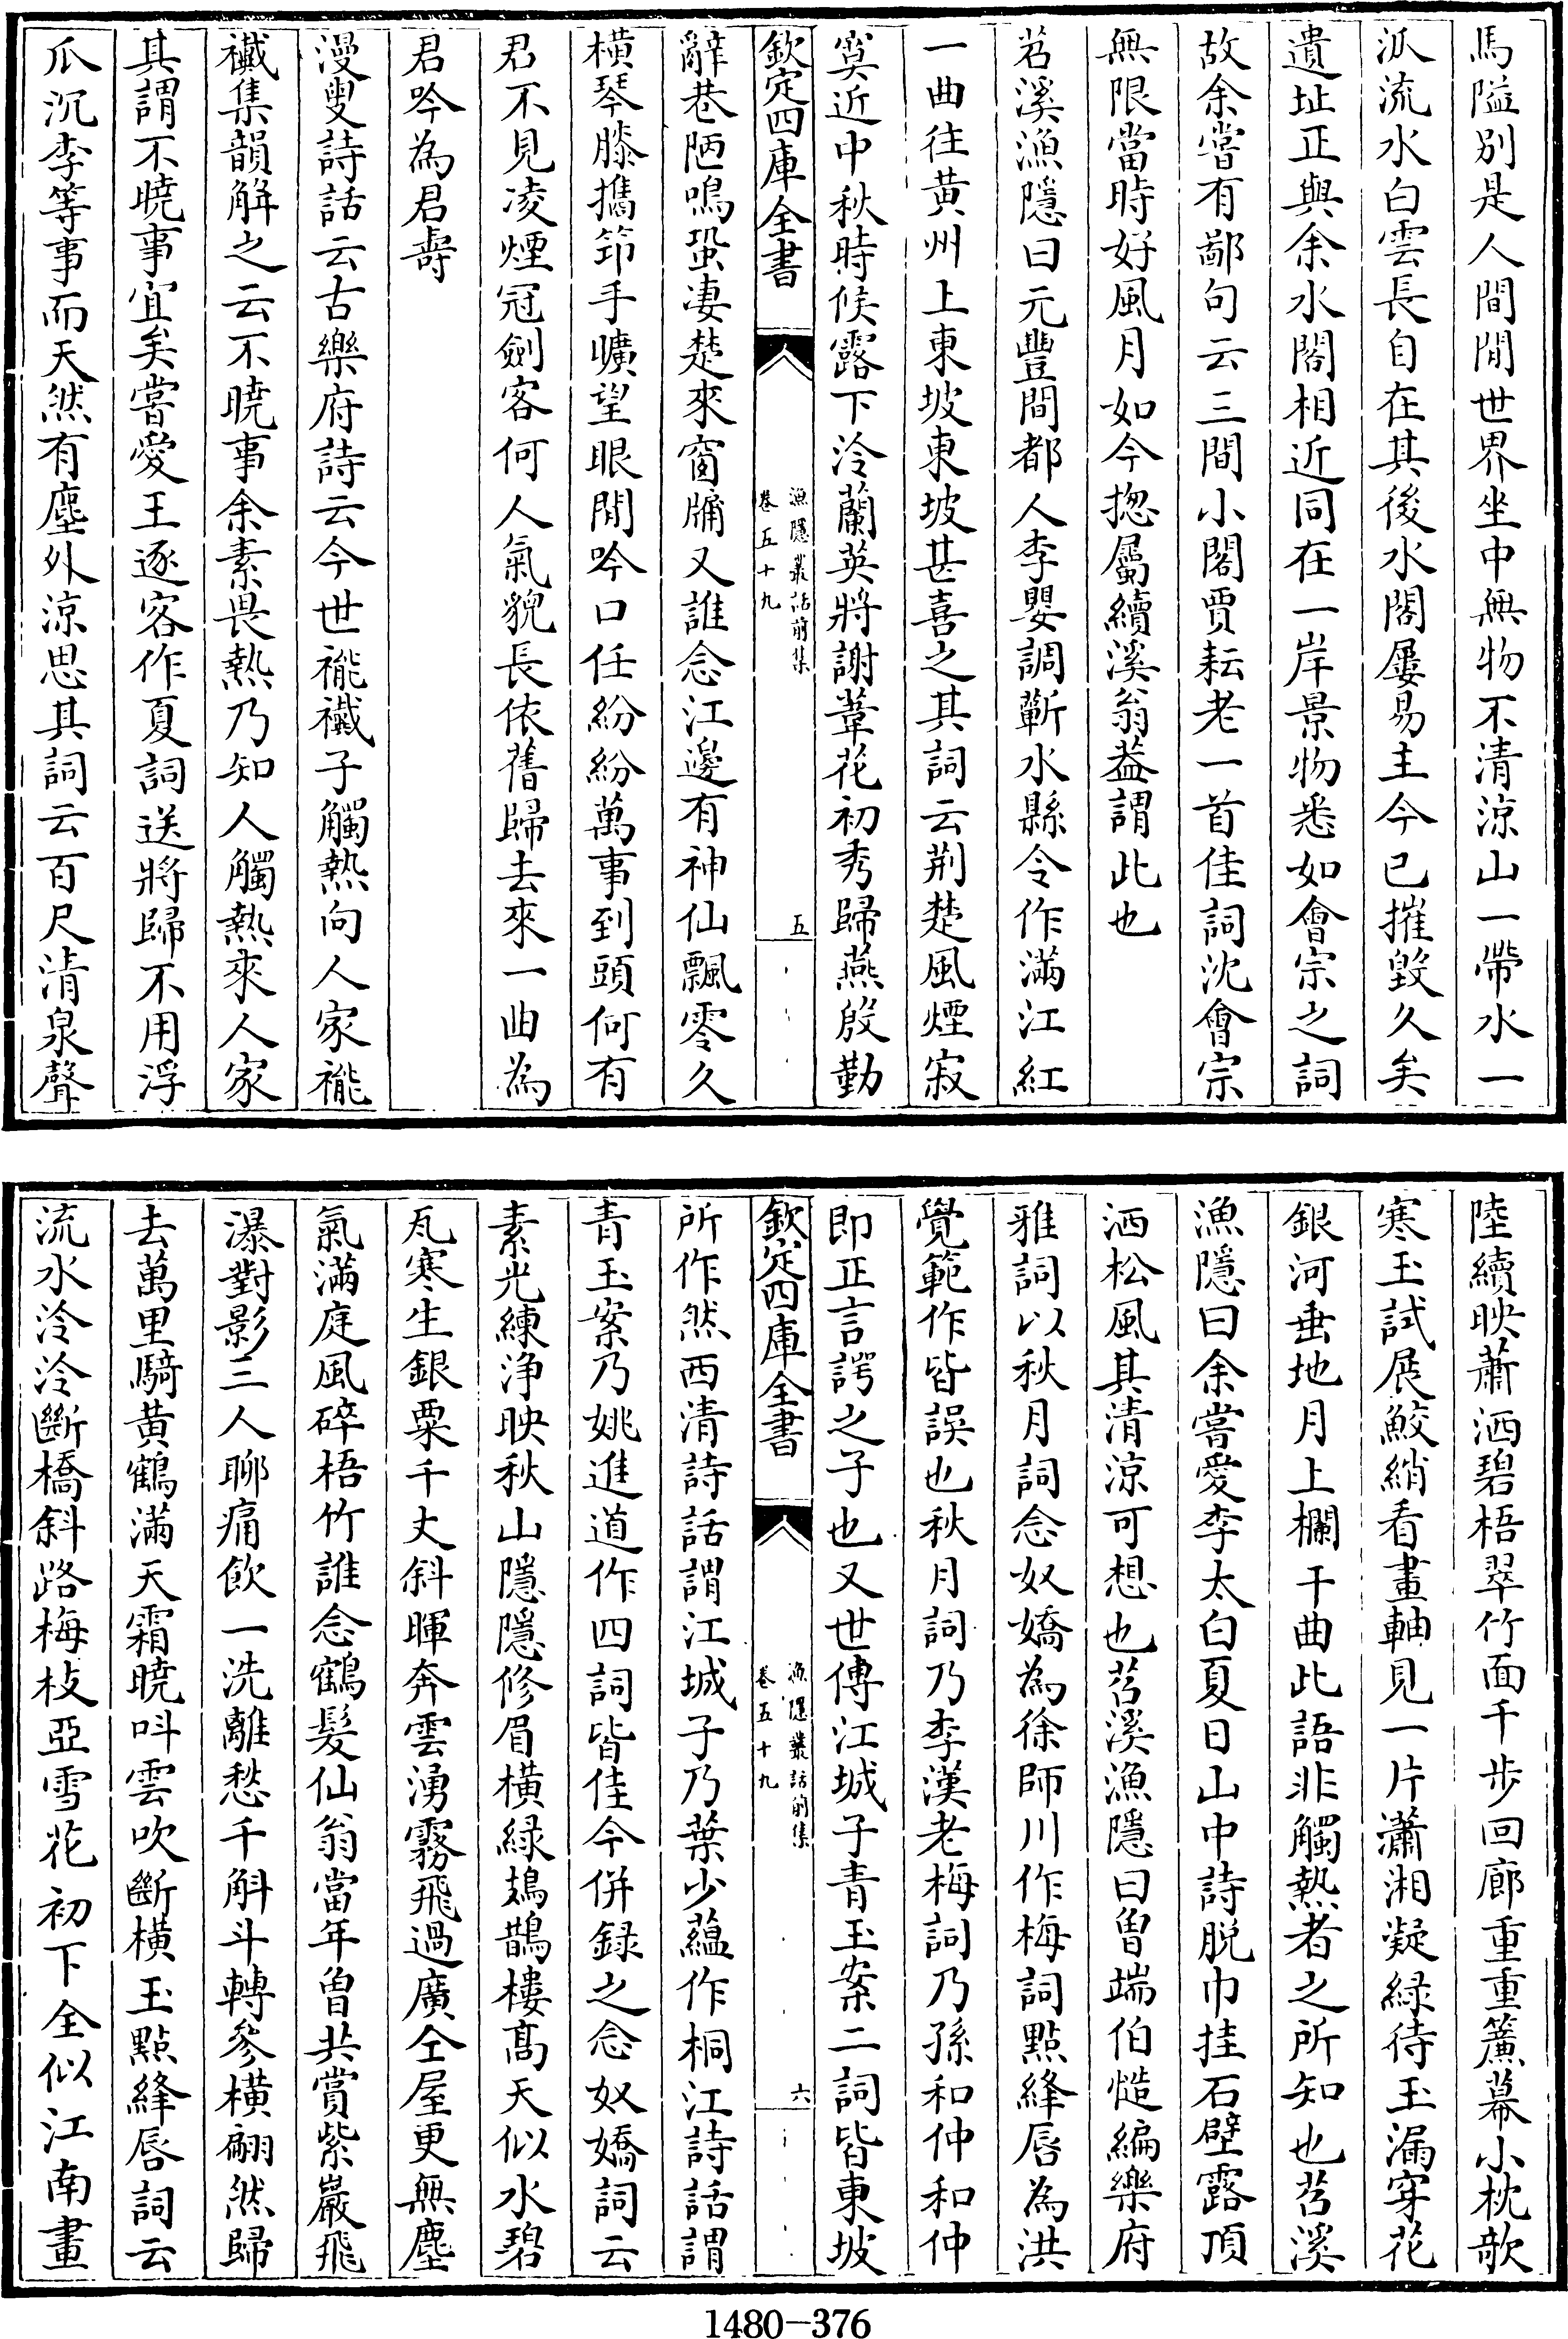 馬隘別是人間閒世界坐中無物不清涼山一帶水一
派流水白雲長自在其後水閣屢易主今已摧毀久矣
遺址正與余水閣相近同在一岸景物悉如會宗之詞
故余嘗有鄙句云三間小閣賈耘老一首佳詞沈會宗
無限當時好風月如今揔屬續溪翁葢謂此也
苕溪漁隱曰元豐間都人李嬰調蘄水縣令作滿江紅
一曲往黄州上東坡東坡甚喜之其詞云荆楚風煙寂
寞近中秋時候露下泠蘭英將謝葦花初秀歸燕殷勤
欽定四庫全書
漁隱叢話前集
卷五十九
五
辭巷陋鳴蛩凄楚來窗牖又誰念江邊有神仙飄零久
橫琴膝攜筇手曠望眼閒吟口任紛紛萬事到頭何有
君不見凌煙冠劍客何人氣貌長依舊歸去來一曲為
君吟為君壽
漫叟詩話云古樂府詩云今世褦襶子觸熱向人家褦
襶集韻解之云不曉事余素畏熱乃知人觸熱來人家
其謂不曉事宜矣嘗愛王逐客作夏詞送將歸不用浮
瓜沉李等事而天然有塵外涼思其詞云百尺清泉聲
陸續映蕭洒碧梧翠竹面千步回廊重重簾幕小枕欹
寒玉試展鮫綃看畫軸見一片瀟湘凝緑待玉漏穿花
銀河垂地月上欄干曲此語非觸熱者之所知也苕溪
漁隱曰余嘗愛李太白夏日山中詩脱巾挂石壁露頂
洒松風其清涼可想也苕溪漁隱曰曽端伯慥編樂府
雅詞以秋月詞念奴嬌為徐師川作梅詞點絳唇為洪
覺範作皆誤也秋月詞乃李漢老梅詞乃孫和仲和仲
即正言諤之子也又世傳江城子青玉案二詞皆東坡
欽定四庫全書
漁隱叢話前集
卷五十九
六
所作然西清詩話謂江城子乃葉少蘊作桐江詩話謂
青玉案乃姚進道作四詞皆佳今併録之念奴嬌詞云
素光練浄映秋山隱隱修眉橫緑鳷鵲樓髙天似水碧
瓦寒生銀粟千丈斜暉奔雲湧霧飛過廣仝屋更無塵
氣滿庭風碎梧竹誰念鶴髮仙翁當年曽共賞紫巖飛
瀑對影三人聊痛飲一洗離愁千斛斗轉參橫翩然歸
去萬里騎黄鶴滿天霜曉呌雲吹斷橫玉點絳唇詞云
流水泠泠斷橋斜路梅枝亞雪花初下全似江南畫
1480-376